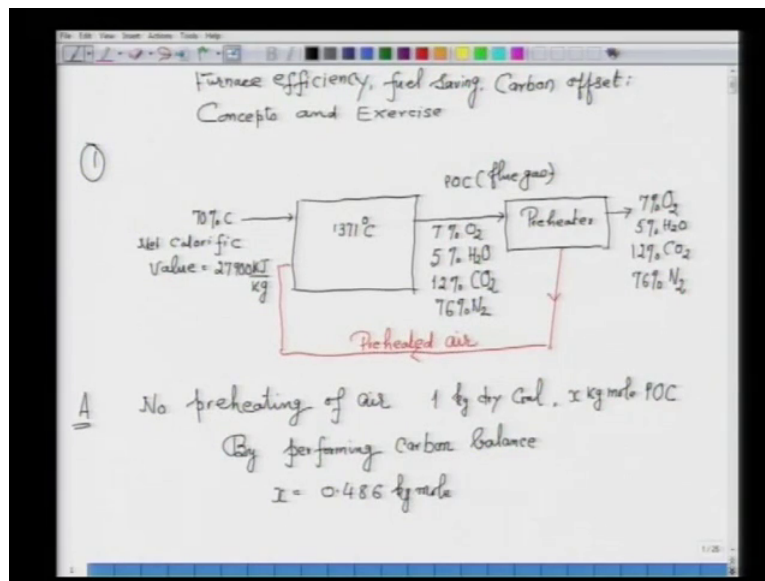 File Edit View Insert Actions Tools Help
Furnace efficiency, fuel saving, Carbon offset:
Concepts and Exercise
1
POC (flue gas)
70% C
Net Calorific
Value = 27900 KJ/kg
1371°C
7% O2
5% H2O
12% CO2
76% N2
Preheater
7% O2
5% H2O
12% CO2
76% N2
Preheated air
A No preheating of air 1 kg dry Coal, x kg mole POC
By performing carbon balance
x = 0.486 kg mole